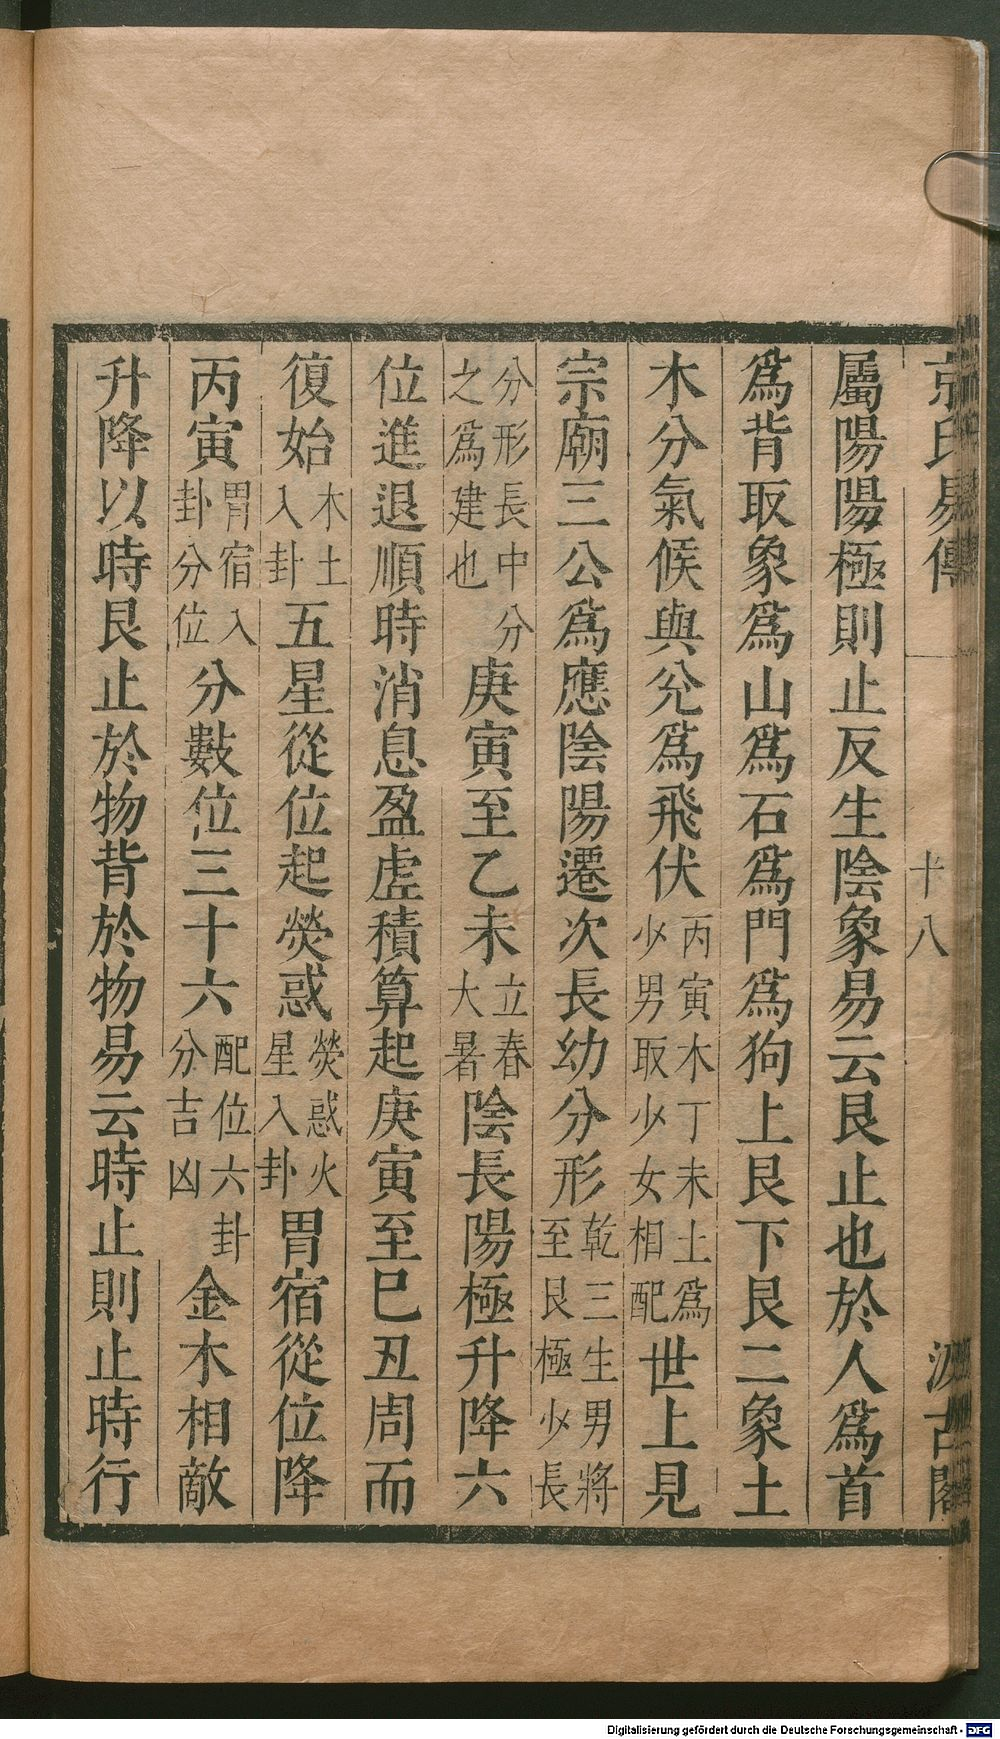 京氏易傳 十八 汲古閣
屬陽陽極則止反生陰象易云艮止也於人爲首
爲背取象爲山爲石爲門爲狗上艮下艮二象土
木分氣候與兊爲飛伏丙寅木丁未土爲少男取少女相配世上見
宗廟三公爲應陰陽遷次長幼分形乾三生男將至艮極少長
分形長中分之爲建也庚寅至乙未立春大暑陰長陽極升降六
位進退順時消息盈虛積算起庚寅至巳丑周而
復始木土入卦五星從位起熒惑熒惑火星入卦胃宿從位降
丙寅胃宿入卦分位分數位三十六配位六卦分吉凶金木相敵
升降以時艮止於物背於物易云時止則止時行
Digitalisierung gefördert durch die Deutsche Forschungsgemeinschaft - DFG